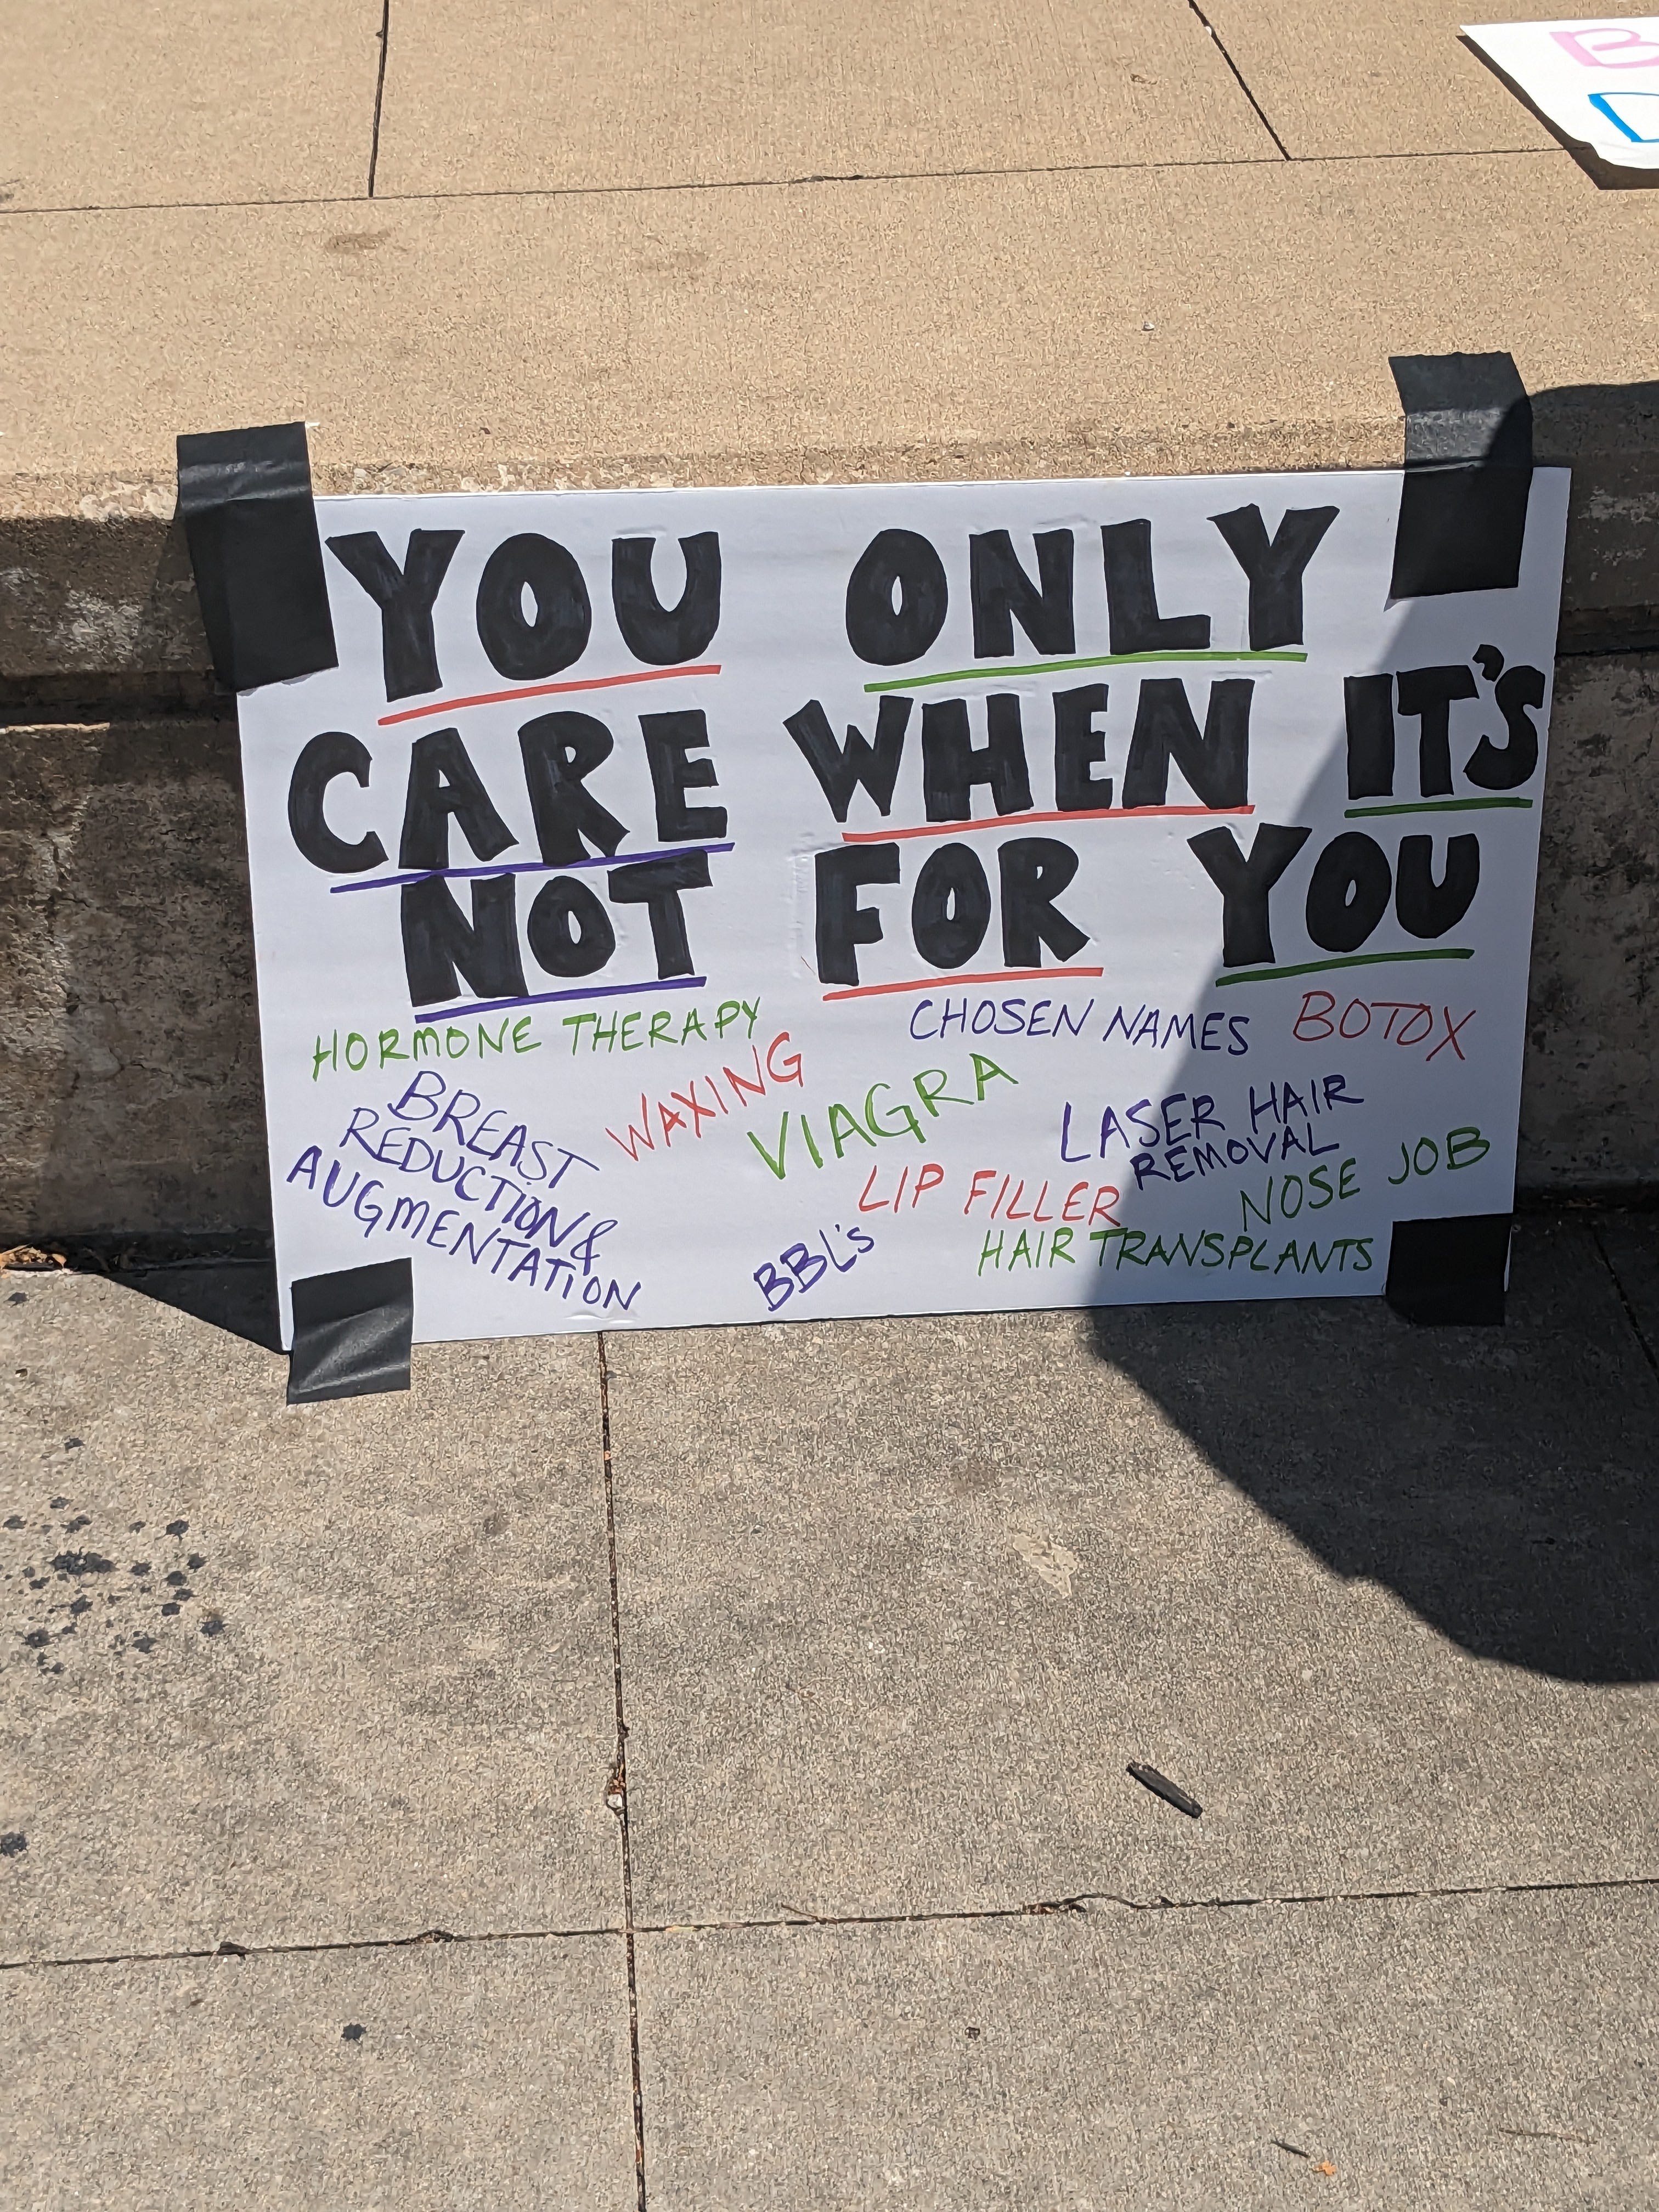 YOU ONLY
CARE WHEN IT'S
NOT FOR YOU
HORMONE THERAPY
CHOSEN NAMES
BOTOX
BREAST
REDUCTION &
AUGMENTATION
WAXING
VIAGRA
LASER HAIR
REMOVAL
LIP FILLER
NOSE JOB
BBL's
HAIR TRANSPLANTS